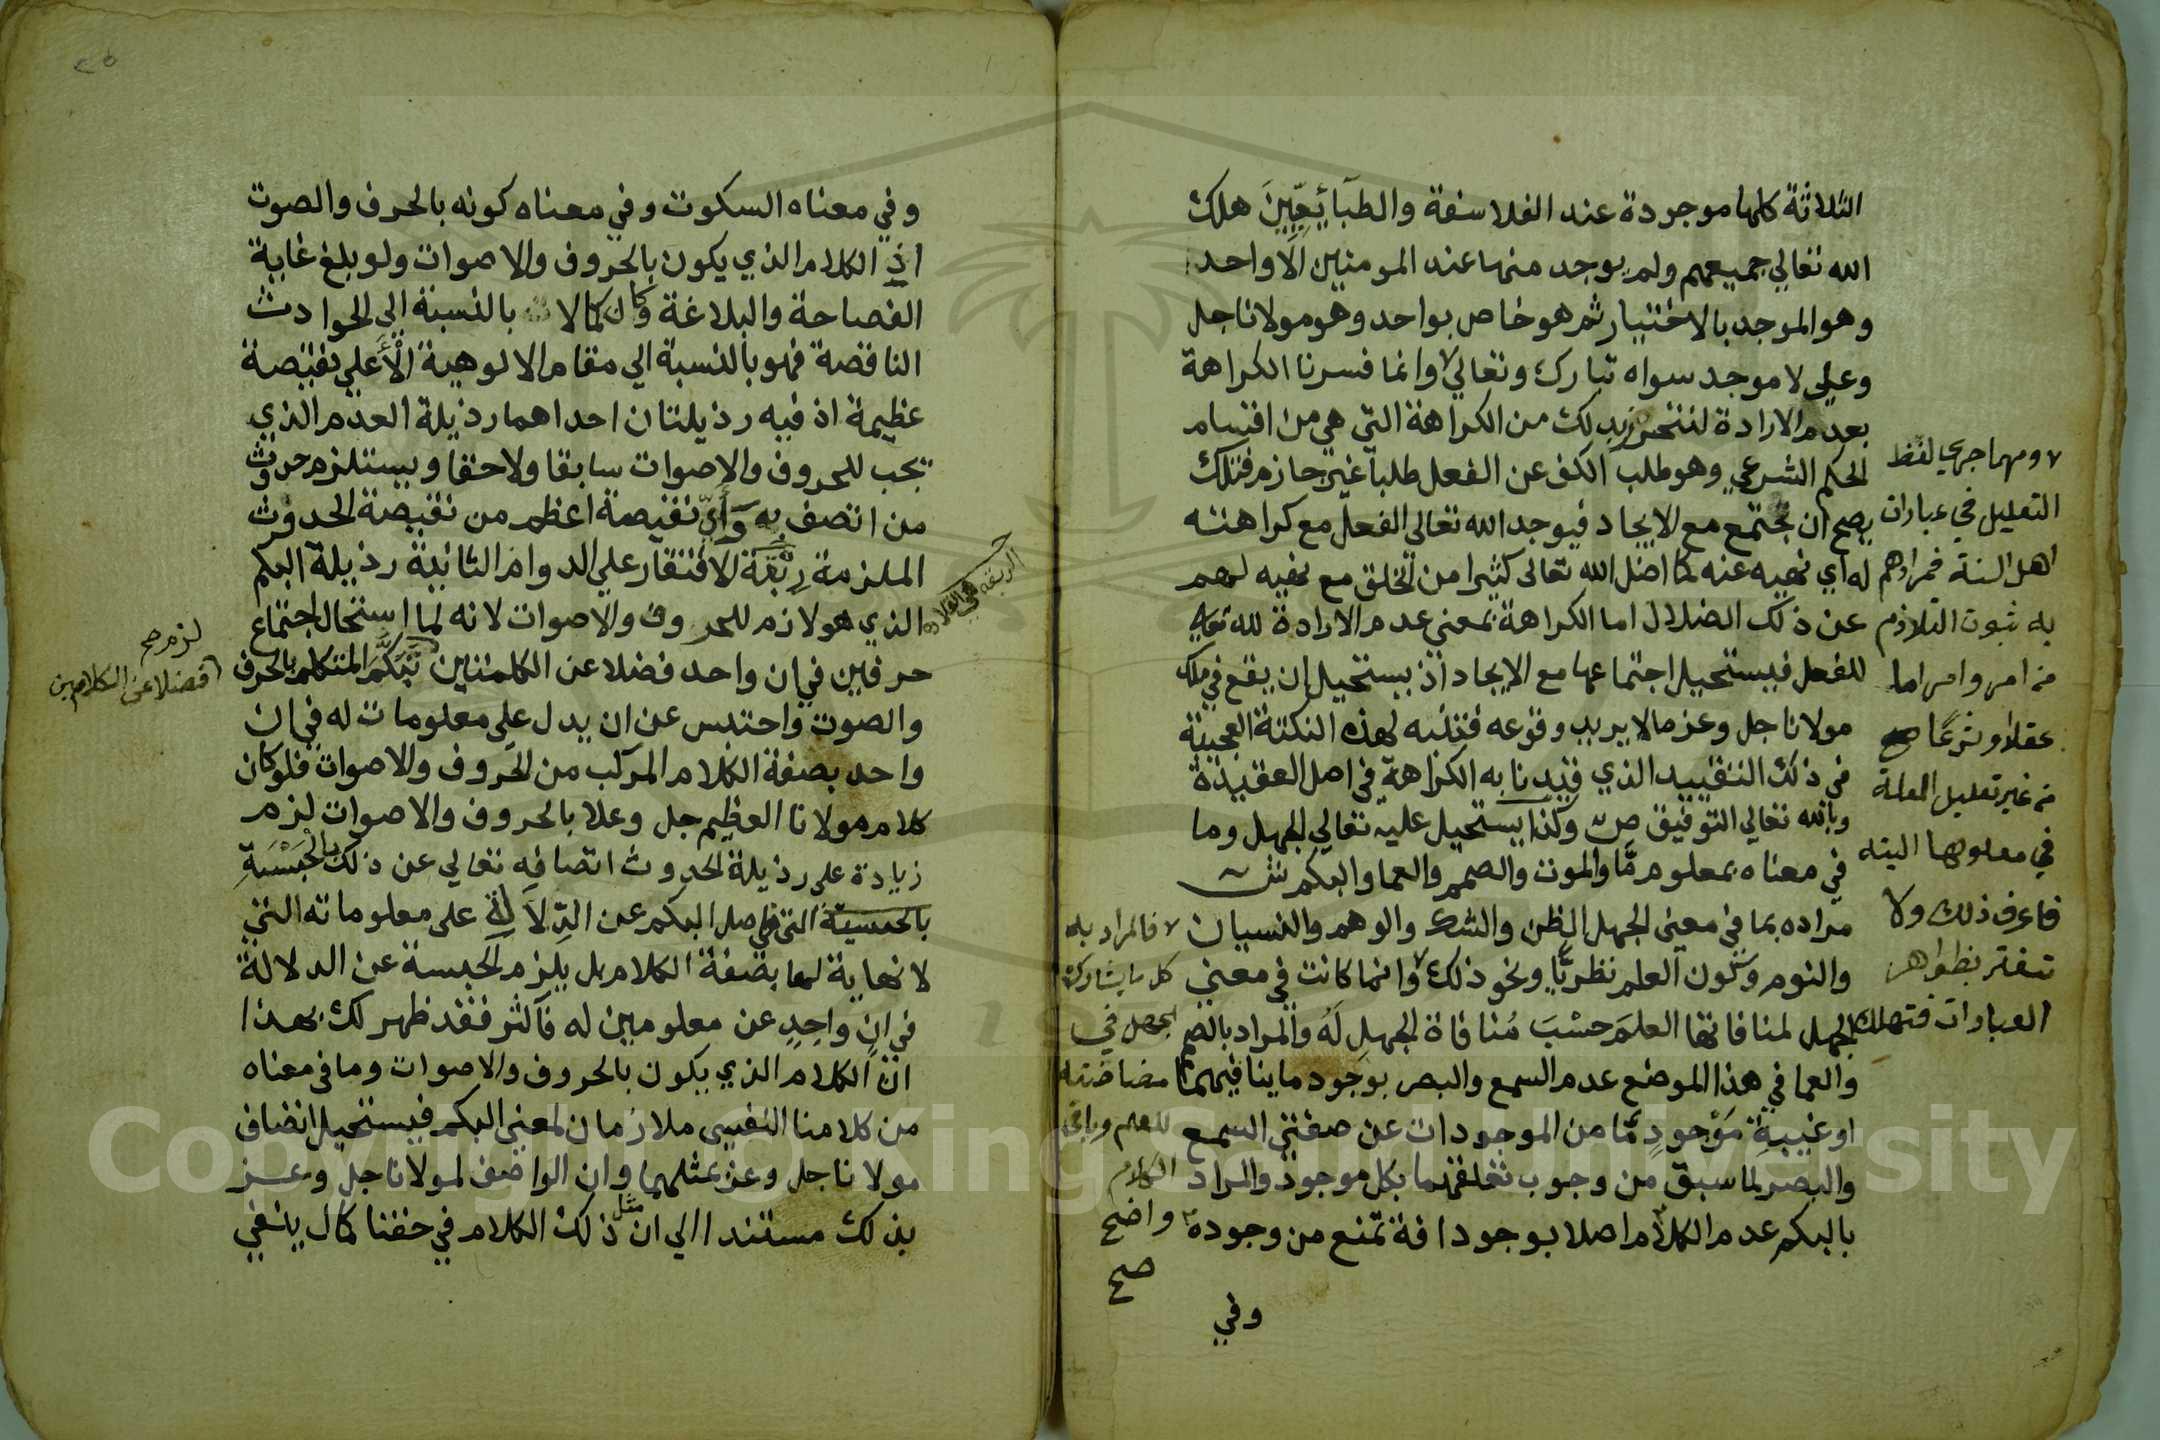 الثلاثة كلها موجودة عند الفلاسفة والطبآئعيِّينَ هلك
الله تعالي جميعهم ولم يوجد منها عند المومنين الا واحد
وهو الموجد بالاختيار ثم هو خاص بواحد وهو مولانا جل
وعلي لا موجد سواه تبارك وتعالي وانما فسرنا الكراهة
بعدم الارادة لنتحرز بذلك من الكراهة التي هي من اقسام
الحكم الشرعي وهو طلب الكف عن الفعل طلبا غير جازم فتلك
يصح ان تجتمع مع الايجاد فيوجد الله تعالي الفعل مع كراهته
له اي نهيه عنه كما اضل الله تعالى كثيرا من الخلق مع نهيه لهم
عن ذلك الضلال اما الكراهة بمعني عدم الارادة لله تعالي
للفعل فيستحيل اجتماعها مع الايجاد اذ يستحيل ان يقع في ملك
مولانا جل وعز ما لا يريد وقوعه فتنبه لهذه النكتة العجيبة
في ذلك التقييد الذي قيدنا به الكراهة في اصل العقيدة
وبالله تعالي التوفيق ص وكذا يستحيل عليه تعالي الجهل وما
في معناه بمعلوم مَّا والموت والصمم والعما والبكم ش
مراده بما في معنى الجهل الظن والشك والوهم والنسيان
والنوم وكون العلم نظريًّا ونحو ذلك وانما كانت في معني
الجهل لمنافاتها العلمَ حسْبَ مُنافاة الجهلِ لَهُ والمراد بالصمم
والعما في هذا الموضع عدم السمع والبصر بوجود ما ينافيهما
او غيبةِ مَوْجودٍ مَّا من الموجودات عن صفتي السمع
والبصر لما سبق من وجوب تعلقهما بكل موجود والمراد
بالبكم عدم الكلام اصلا بوجود افة تمنع من وجوده
وفي
ومهما جري لفظ
التعليل في عبارات
اهل السنة فمرادهم
به ثبوت التلازم
من امر وامر اما
عقلا او شرعًا صح
من غير تعليل العلة
في معلولها البته
فاعرف ذلك ولا
تغتر بظواهر
العبارات فتهلك
فالمراد به
كل ما يشارك
الجهل في
مضادته
للعلم وباقي
الكلام
واضح
صح
٢٥
وفي معناه السكوت وفي معناه كونه بالحرف والصوت
اذِ الكلام الذي يكون بالحروف والاصوات ولو بلغ غاية
الفصاحة والبلاغة وكان كمالا بالنسبة الي الحوادث
الناقصة فهو بالنسبة الي مقام الالوهية الْأَعلي نقيصة
عظيمة اذ فيه رذيلتان احداهما رذيلة العدم الذي
يجب للحروف والاصوات سابقا ولاحقا ويستلزم حدوث
من اتصف به وَأَيّ نقيصة اعظم من نقيصة الحدوث
الملزمة رِبْقة الافتقار علي الدوام الثانية رذيلة البكم
الذي هو لازم للحروف والاصوات لانه لما استحال اجتماع
حرفين في ان واحد فضلا عن الكلمتين تَبَكَّمَ المتكلم بالحرف
والصوت واحتبس عن ان يدل علي معلومات له في ان
واحد بصفة الكلام المركب من الحروف والاصوات فلو كان
كلام مولانا العظيم جل وعلا بالحروف والاصوات لزم
زيادة علي رذيلة الحدوث اتصافه تعالي عن ذلك بالحُبْسَةِ
التي هي اصل البكم عن الدِّلَالَةِ على معلوماته التي
لا نهاية لها بصفة الكلام بل يلزم الحبسة عن الدلالة
في انٍ واحِدٍ عن معلومين له فاكثر فقد ظهر لك بهذا
انّ الكلام الذي يكون بالحروف والاصوات وما في معناه
من كلامنا النفسي ملازمان لمعني البكم فيستحيل اتصاف
مولانا جل وعز بمثلهما وان الواصف لمولانا جل وعز
بذلك مستندا الي ان مثل ذلك الكلام في حقنا كمال ينفي
الربقة هي القلادة
لزم صح
فضلا عن الكلامين
Copyright © King Saud University